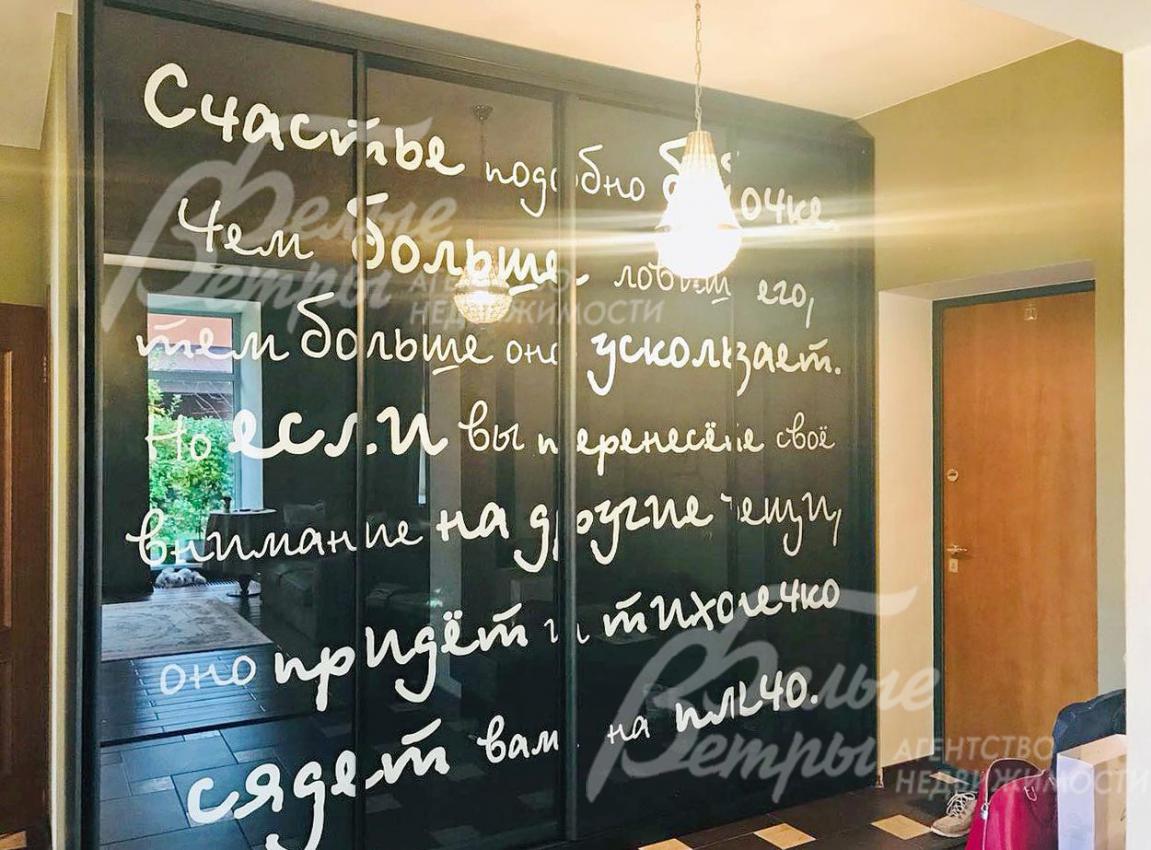 Счастье подобно бабочке.
Чем больше ловишь его,
тем больше оно ускользает.
Но если вы перенесёте своё
внимание на другие вещи,
оно придёт и тихонечко
сядет вам на плечо.
Белые Ветры АГЕНТСТВО НЕДВИЖИМОСТИ
Белые Ветры АГЕНТСТВО НЕДВИЖИМОСТИ